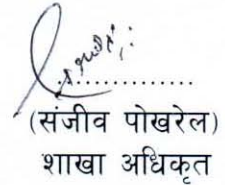 (संजीव पोखरेल)
शाखा अधिकृत